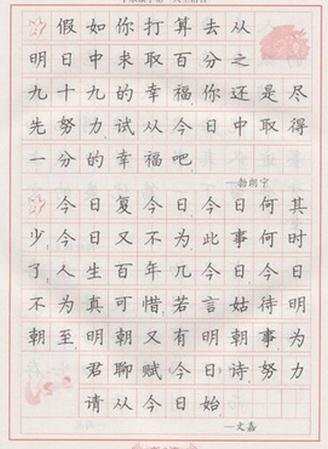 假如你打算去从
明日中求取百分之
九十九的幸福,你还是尽
先努力,试从今日中取得
一分的幸福吧.
—勃朗宁
今日复今日,今日何其
少,今日又不为,此事何时
了,人生百年几今日,今日
不为真可惜,若言姑待明
朝至,明朝又有明朝事,为
君聊赋《今日》诗,努力
请从今日始.
—文嘉